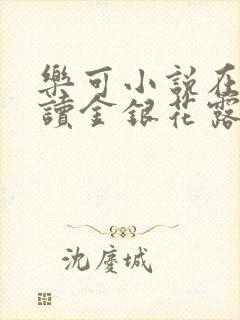 樂可小說在
讀金銀花露
沈慶城